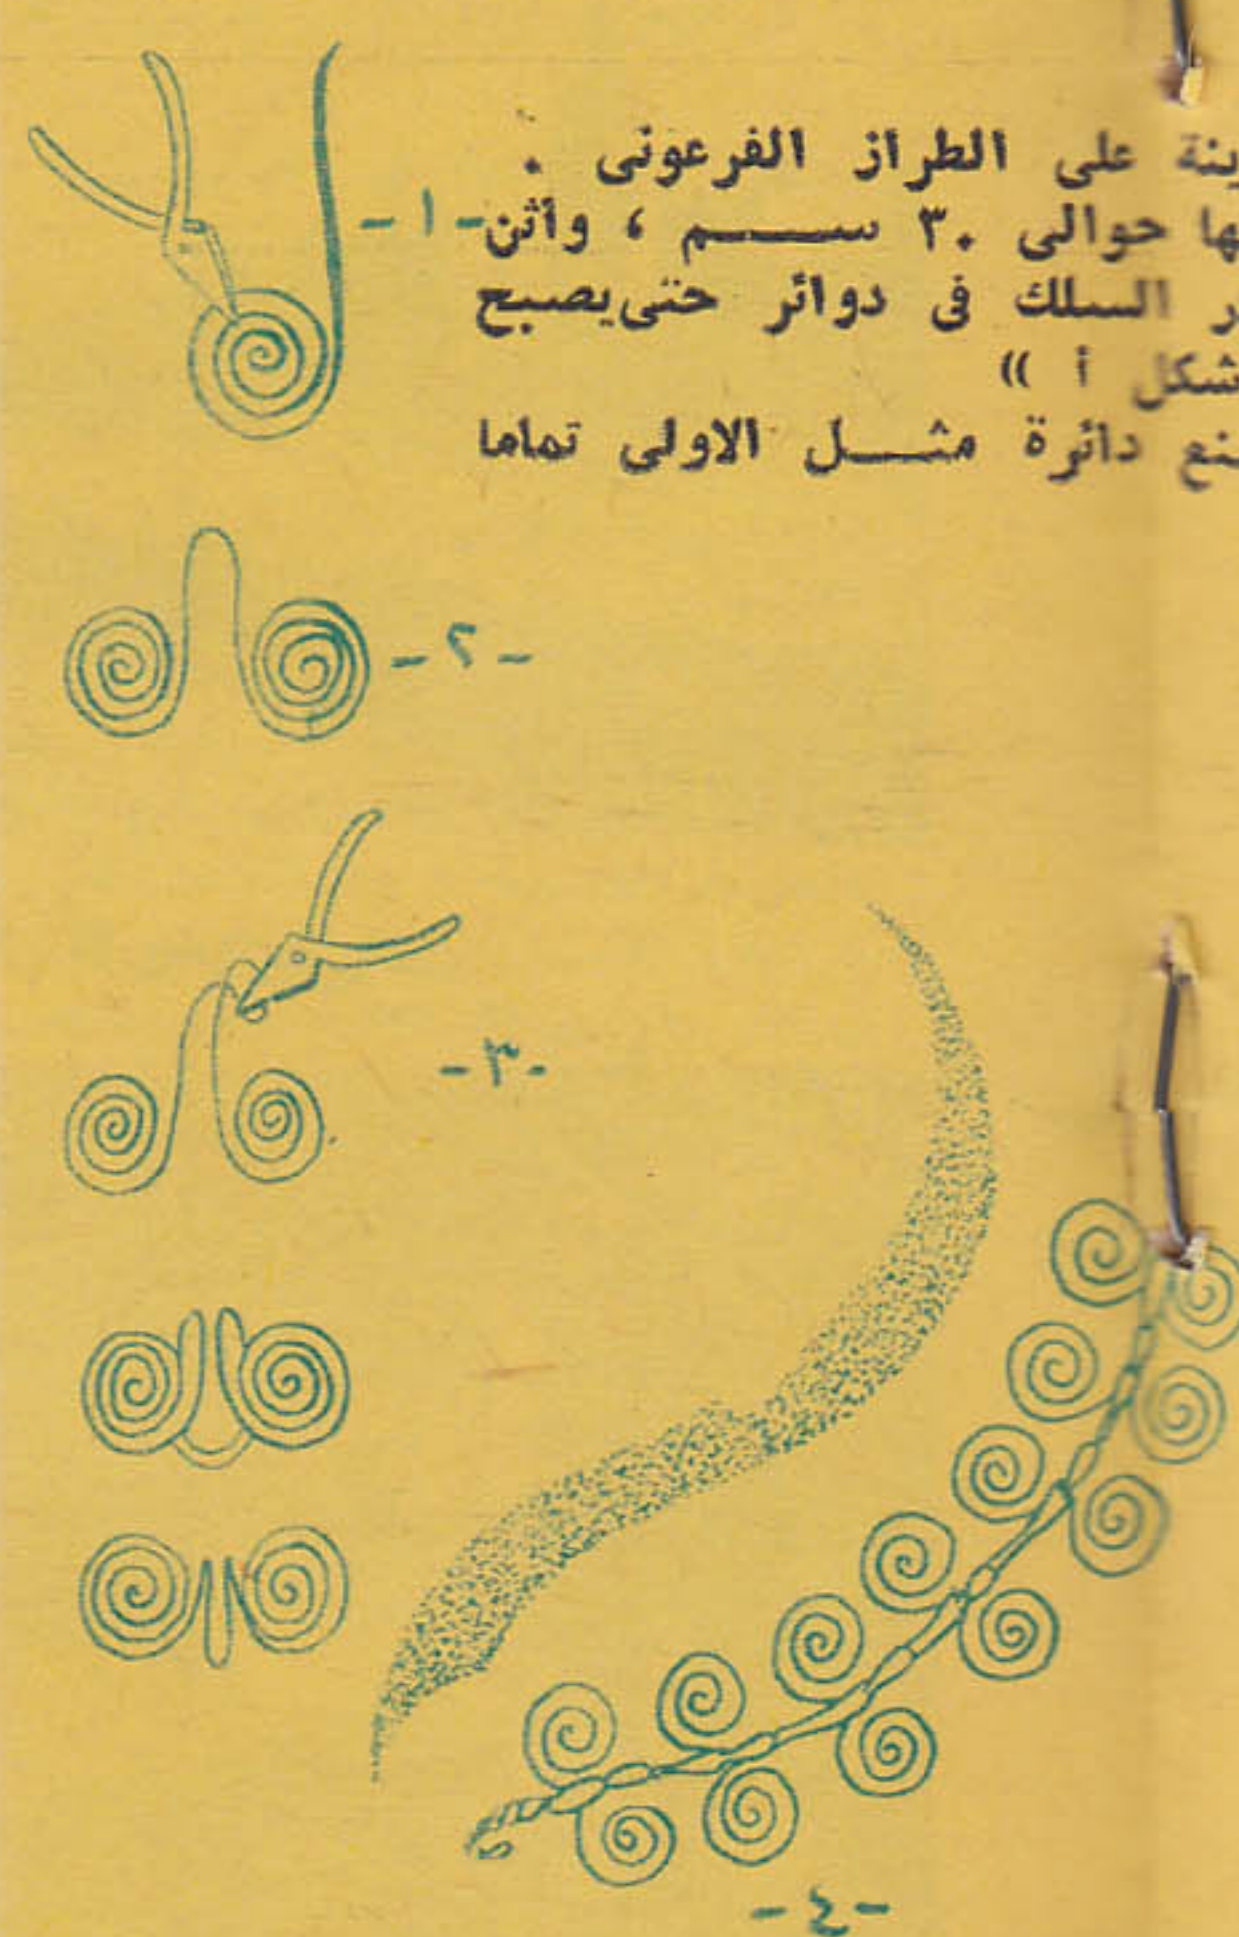 ينة على الطراز الفرعونى .
ها حوالى ٣٠ ســــم ، وأثن
ر السلك فى دوائر حتى يصبح
شكل أ »
نع دائرة مثــــل الاولى تماما
- ١ -
- ٢ -
- ٣ -
- ٤ -